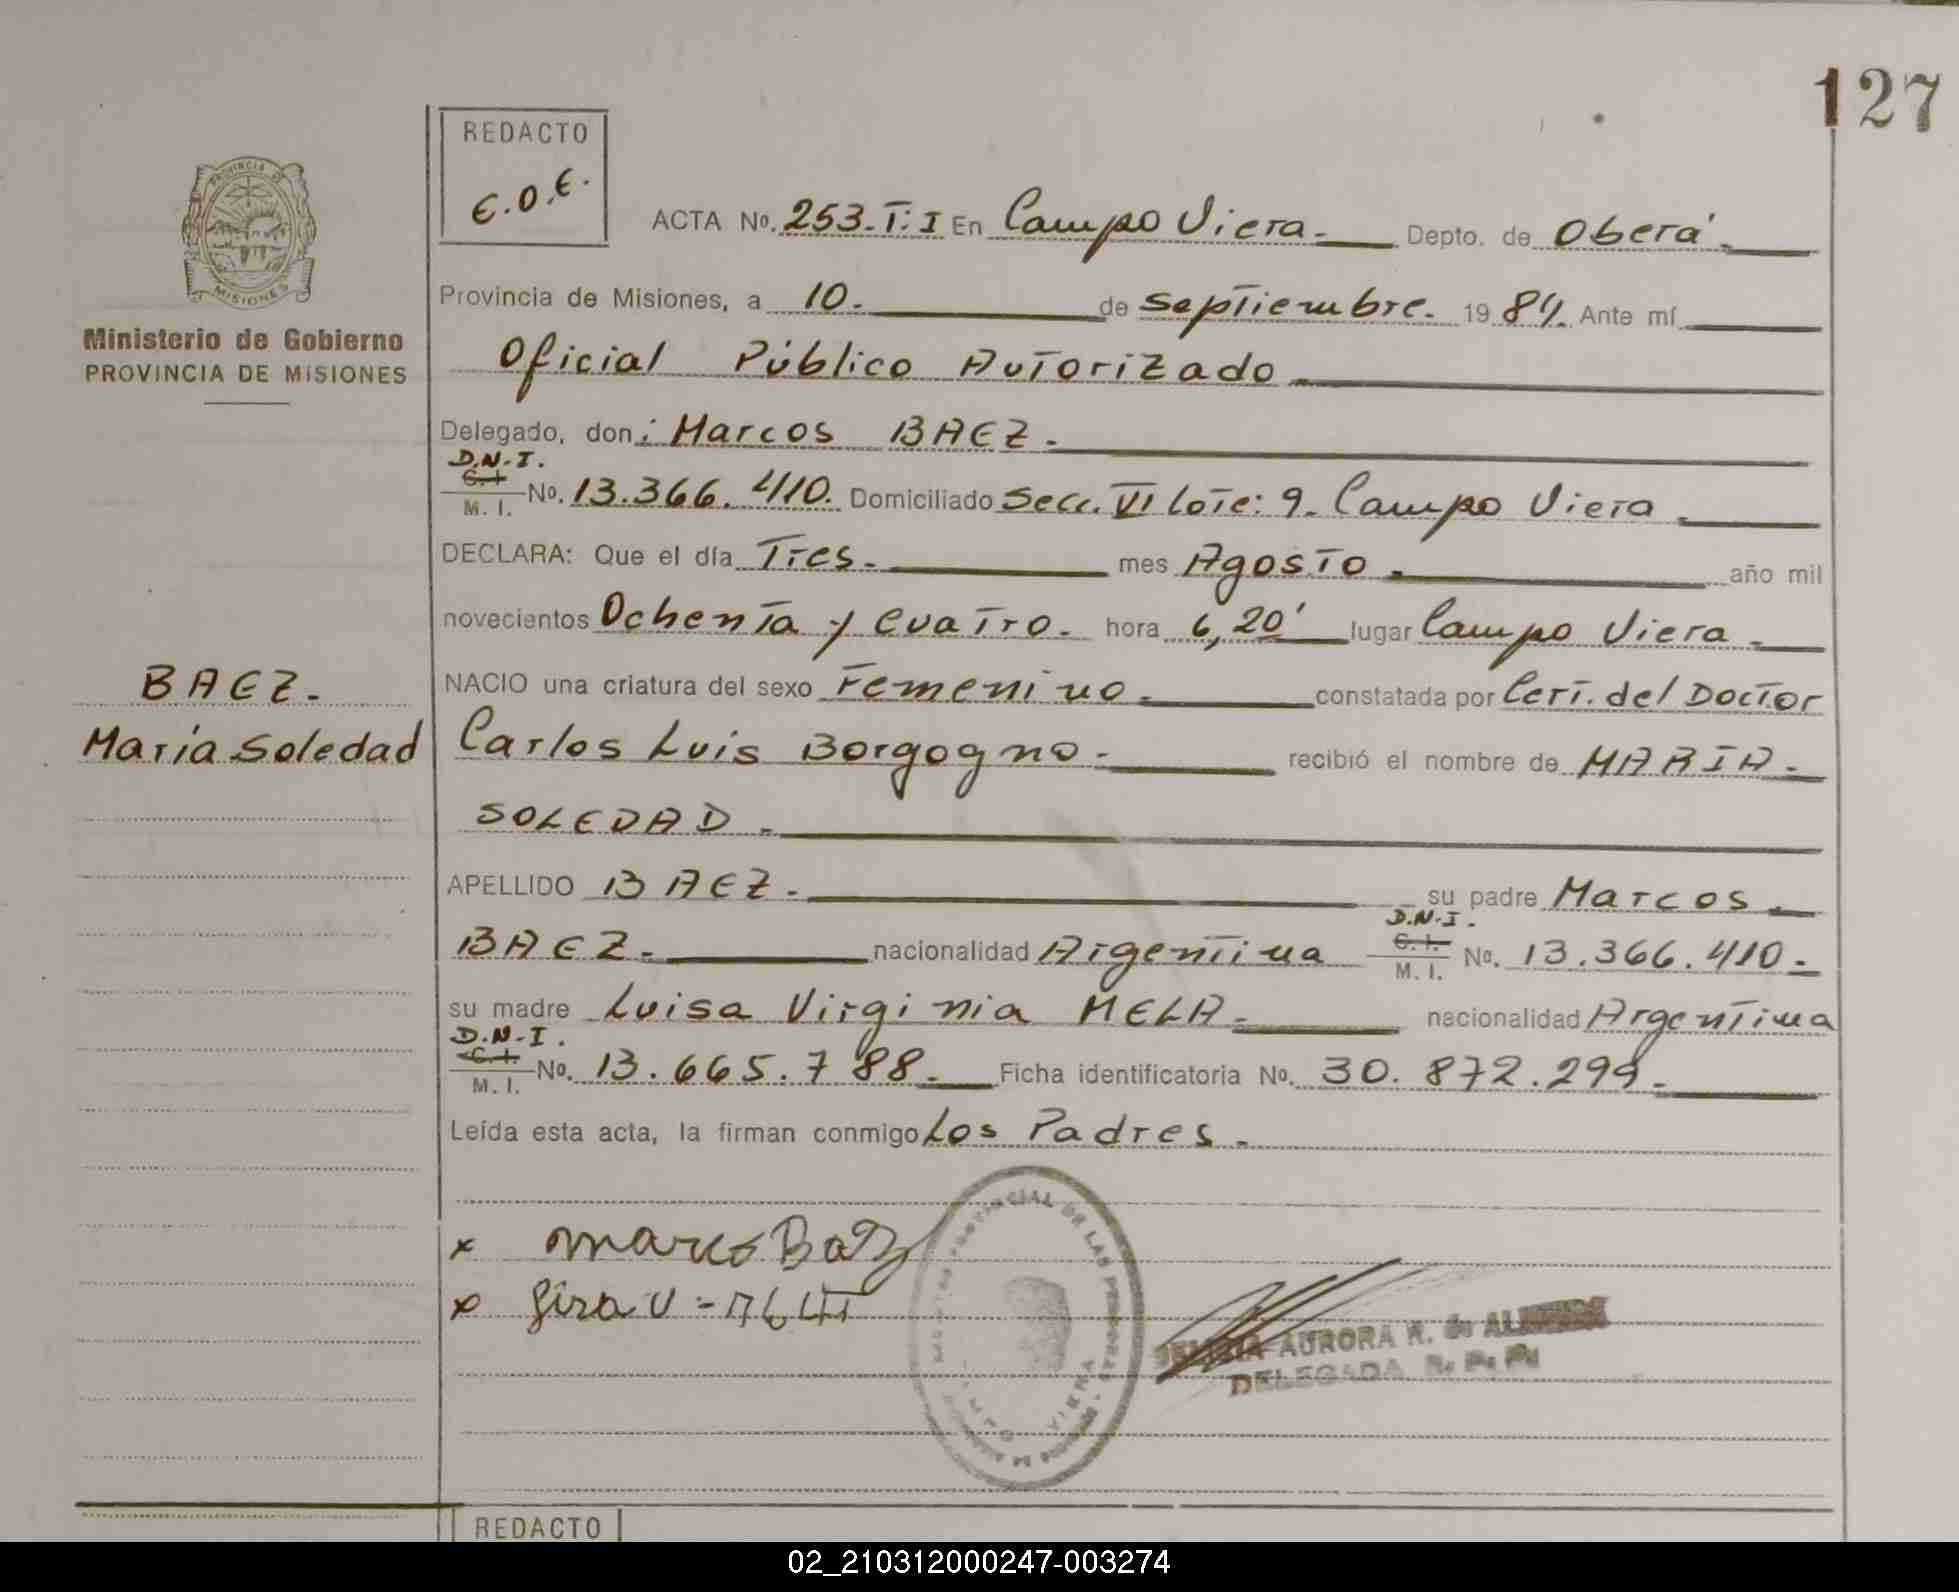 127
REDACTO
E.O.E.
PROVINCIA DE
MISIONES
Ministerio de Gobierno
PROVINCIA DE MISIONES
ACTA No. 253.T:I En Campo Viera. Depto. de Oberá.
Provincia de Misiones, a 10. de septiembre. 1984. Ante mí
Oficial Público Autorizado
Delegado, don: Marcos BAEZ.
D.N.I.
C.I. M. I. No. 13.366.410. Domiciliado Secc. VI Lote: 9. Campo Viera
DECLARA: Que el día Tres. mes Agosto. año mil
novecientos Ochenta y Cuatro. hora 6,20' lugar Campo Viera.
BAEZ.
María Soledad
NACIO una criatura del sexo Femenino. constatada por Cert. del Doctor
Carlos Luis Borgogno. recibió el nombre de MARIA.
SOLEDAD.
APELLIDO BAEZ. su padre Marcos.
D.N.I.
BAEZ. nacionalidad Argentina C.I. M. I. No. 13.366.410.
su madre Luisa Virginia MELA. nacionalidad Argentina
D.N.I.
C.I. M. I. No. 13.665.788. Ficha identificatoria No. 30.872.299.
Leída esta acta, la firman conmigo Los Padres.
x Marcos Baez
x
PROVINCIAL DE LAS PERSONAS
VIERA
AURORA R. de
DELEGADA R. P. P.
REDACTO
02_210312000247-003274